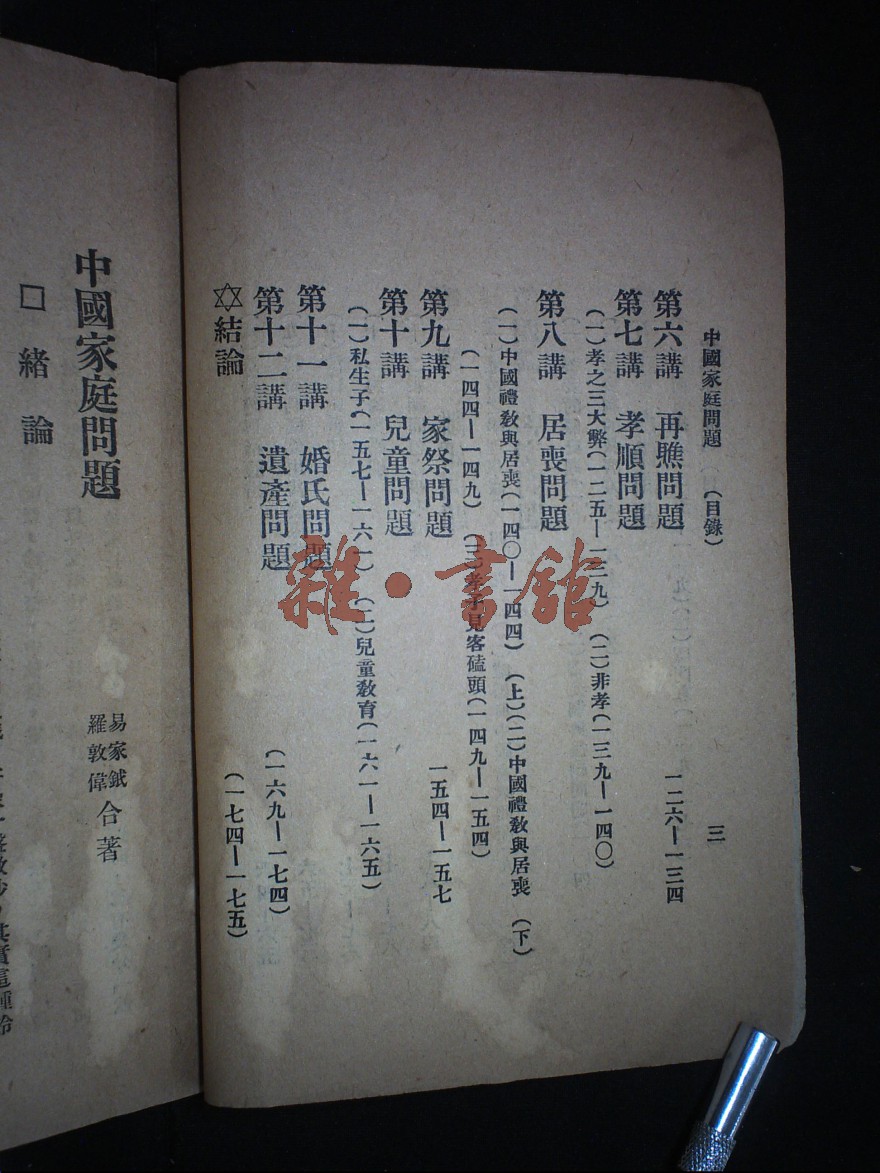 中國家庭問題　（目錄）　三
第六講　再醮問題　一二六—一三四
第七講　孝順問題
（一）孝之三大弊（一二五—一三九）　（二）非孝（一三九—一四〇）
第八講　居喪問題
（一）中國禮敎與居喪（一四〇—一四四）（上）（二）中國禮敎與居喪（下）
（一四四—一四九）（三）孝子見客磕頭（一四九—一五四）
第九講　家祭問題　一五四—一五七
第十講　兒童問題
（一）私生子（一五七—一六一）（二）兒童敎育（一六一—一六五）
第十一講　婚氏問題
第十二講　遺產問題　（一六九—一七四）
✡結論　（一七四—一七五）
雜·書館
中國家庭問題
易家鉞
羅敦偉
合著
□　緒論
其實這種